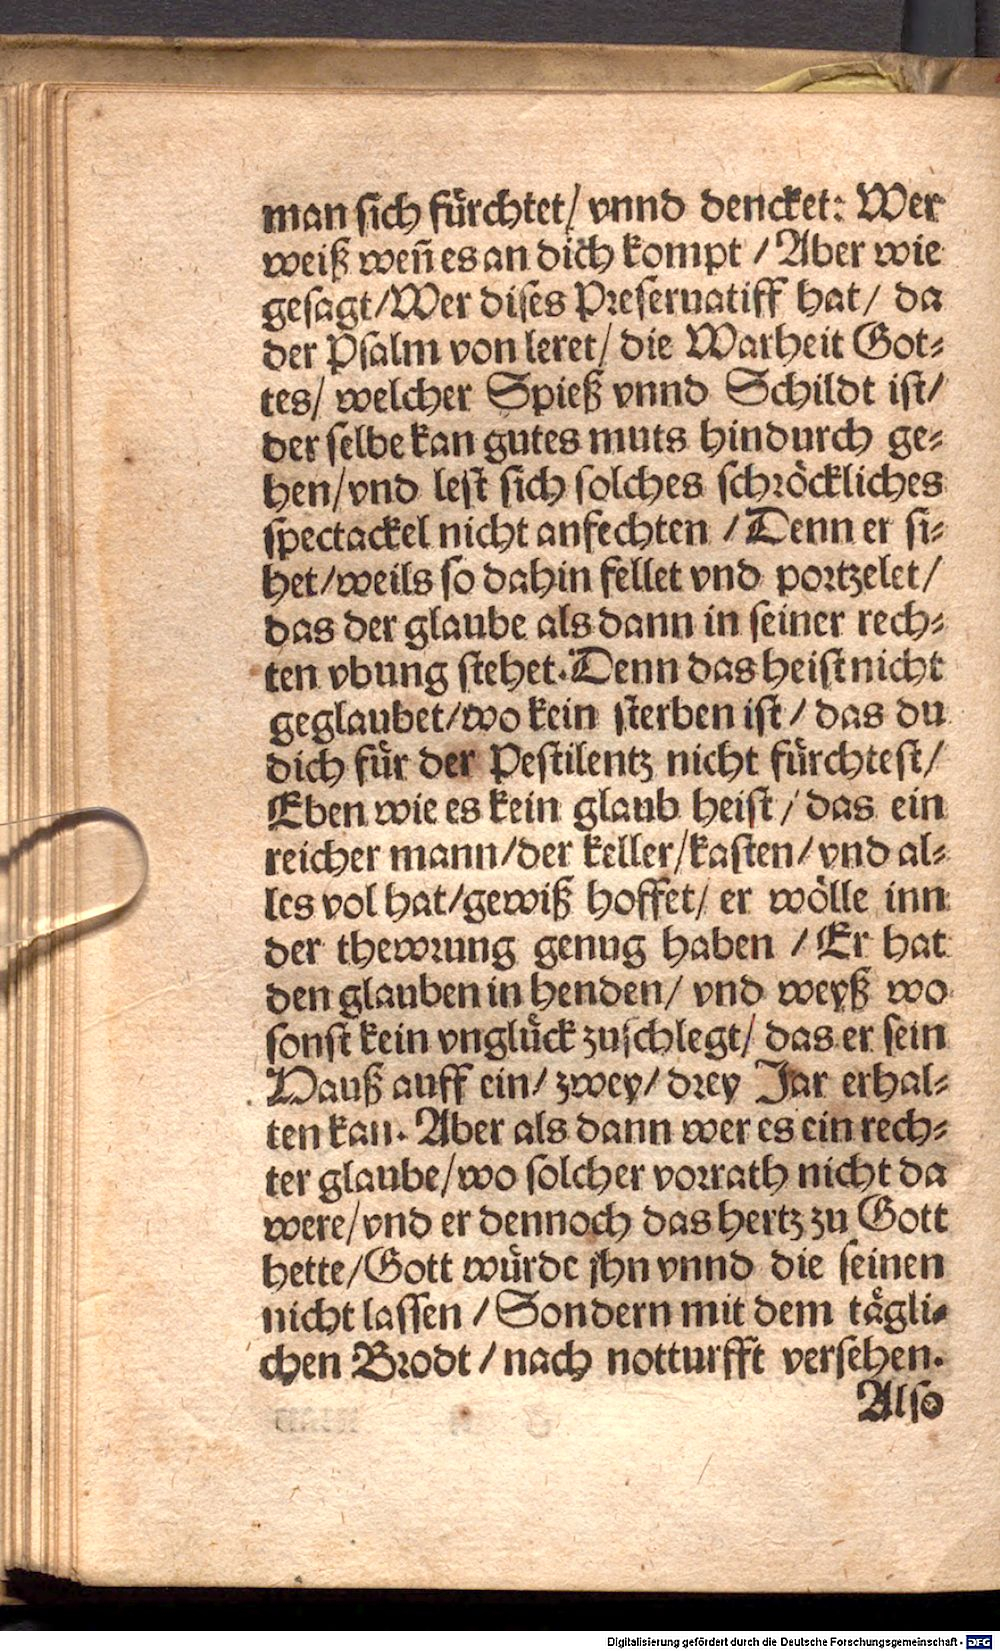 man sich fürchtet/ vnnd dencket: Wer
weiß weñ es an dich kompt / Aber wie
gesagt/Wer dises Preseruatiff hat/ da
der Psalm von leret/ die Warheit Got⸗
tes/ welcher Spieß vnnd Schildt ist/
der selbe kan gutes muts hindurch ge⸗
hen/vnd lest sich solches schröckliches
spectackel nicht anfechten / Denn er si⸗
het/weils so dahin fellet vnd portzelet/
das der glaube als dann in seiner rech⸗
ten vbung stehet. Denn das heist nicht
geglaubet/wo kein sterben ist / das du
dich für der Pestilentz nicht fürchtest/
Eben wie es kein glaub heist / das ein
reicher mann/der keller/kasten/vnd al⸗
les vol hat/gewiß hoffet/ er wölle inn
der thewrung genug haben / Er hat
den glauben in henden/ vnd weyß wo
sonst kein vnglück zuschlegt/ das er sein
Hauß auff ein/ zwey/ drey Jar erhal⸗
ten kan. Aber als dann wer es ein rech⸗
ter glaube/wo solcher vorrath nicht da
were/vnd er dennoch das hertz zu Gott
hette/Gott würde jhn vnnd die seinen
nicht lassen / Sondern mit dem tägli⸗
chen Brodt / nach notturfft versehen.
Also
Digitalisierung gefördert durch die Deutsche Forschungsgemeinschaft - DFG